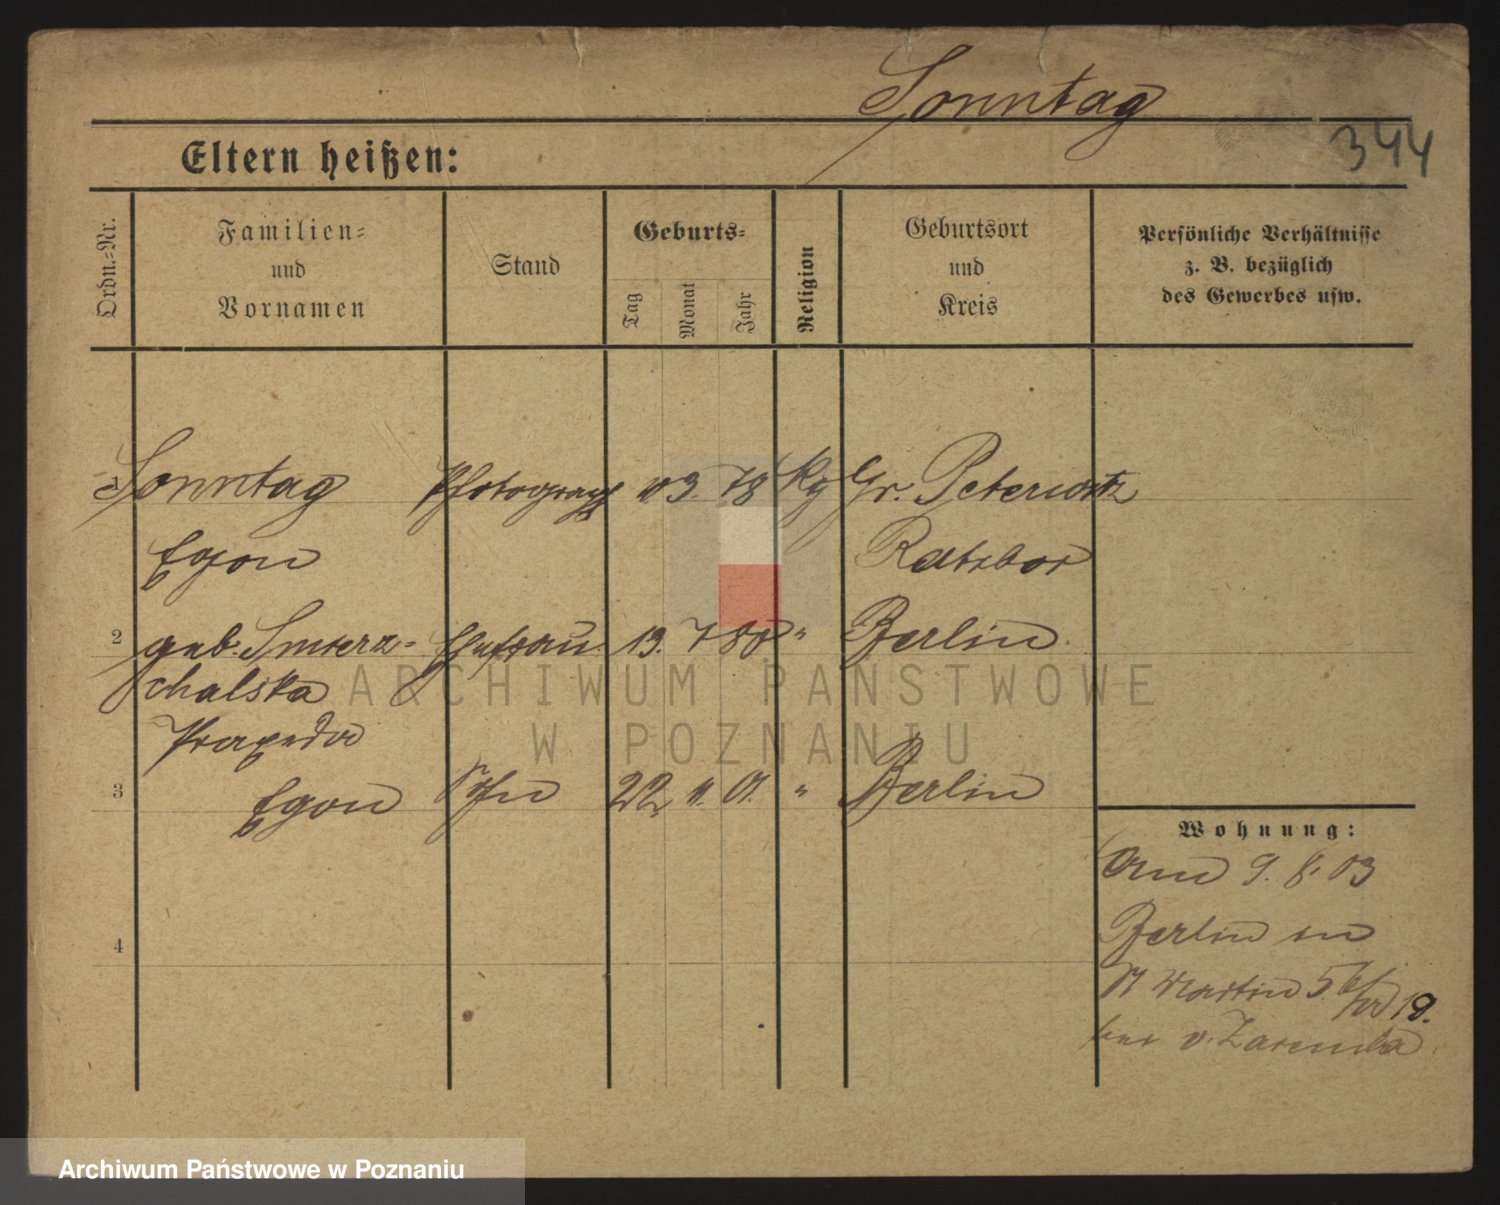 Sonntag
344
Eltern heißen:
Ordn.-Nr.
Familien-
und
Vornamen
Stand
Geburts-
Tag
Monat
Jahr
Religion
Geburtsort
und
Kreis
Persönliche Verhältnisse
z. B. bezüglich
des Gewerbes usw.
1 Sonntag Photograph 3. 78 Gr. Peterwitz
Egon Ratibor
2 geb. Smierz- Ehefrau 13. 7 80 " Berlin
chalska
Praxeda
3 Egon Sohn 22 11. 01. " Berlin
4
Wohnung:
Am 9. 8. 03
Berlin in
St Martin 5 18.
v.
ARCHIWUM PAŃSTWOWE
W POZNANIU
Archiwum Państwowe w Poznaniu